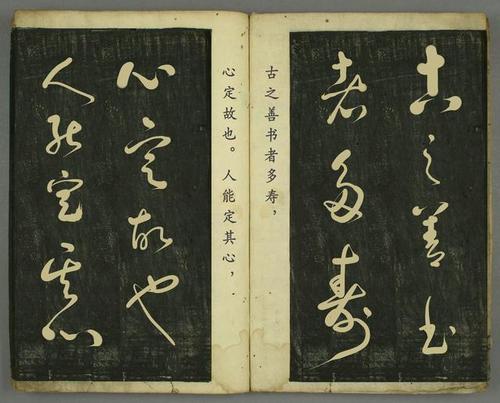 古之善书
者多寿
古之善书者多寿，
心定故也。人能定其心，
心定故也
人能定其心